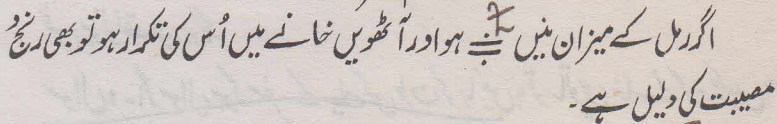 اگر رمل کے میزان میں ہو اور آٹھویں خانے میں اُس کی تکرار ہو تو بھی رنج و
مصیبت کی دلیل ہے۔